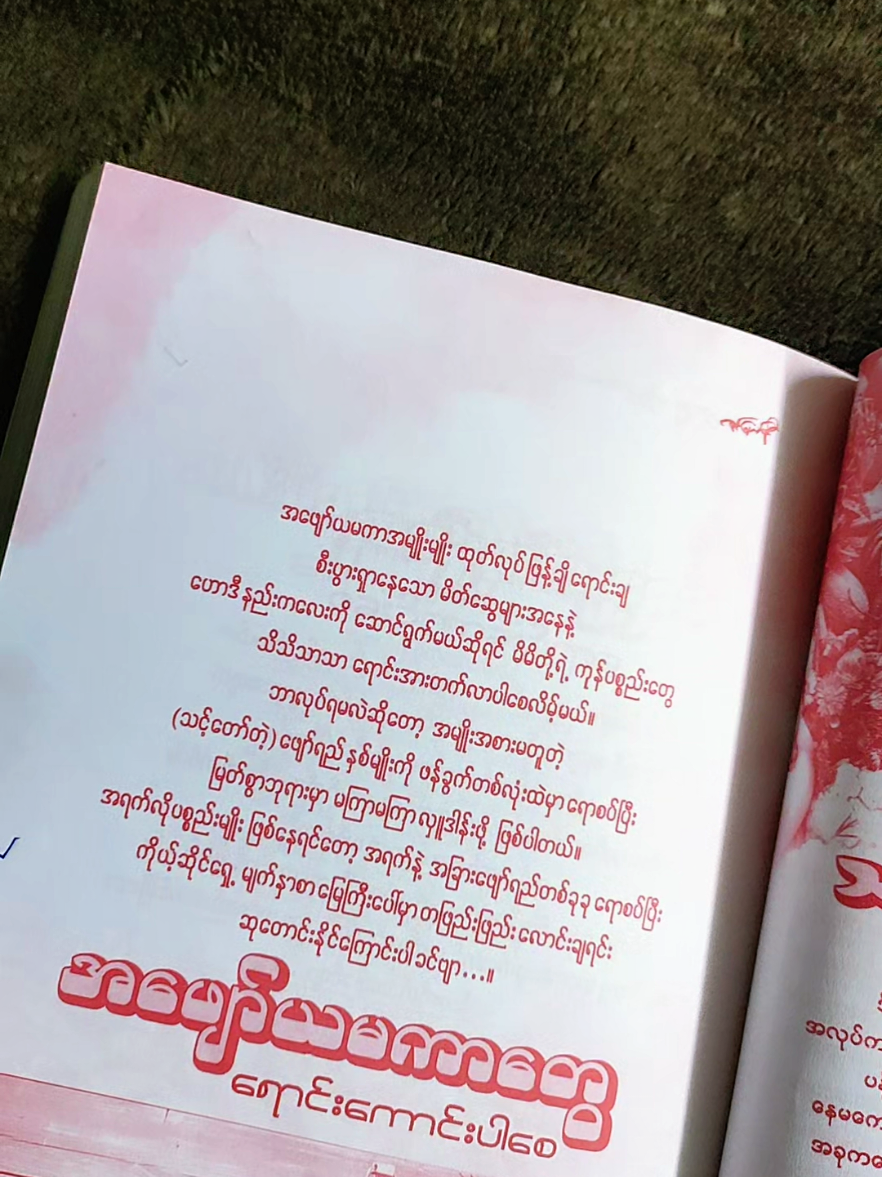 အဖျော်ယမကာအမျိုးမျိုး ထုတ်လုပ်ဖြန့်ချိ ရောင်းချ
စီးပွားရှာနေသော မိတ်ဆွေများအနေနဲ့
ဟောဒီနည်းကလေးကို ဆောင်ရွက်မယ်ဆိုရင် မိမိတို့ရဲ့ ကုန်ပစ္စည်းတွေ
သိသိသာသာ ရောင်းအားတက်လာပါစေလိမ့်မယ်။
ဘာလုပ်ရမလဲဆိုတော့ အမျိုးအစားမတူတဲ့
(သင့်တော်တဲ့) ဖျော်ရည်နှစ်မျိုးကို ဖန်ခွက်တစ်လုံးထဲမှာ ရောစပ်ပြီး
မြတ်စွာဘုရားမှာ မကြာမကြာ လှူဒါန်းဖို့ ဖြစ်ပါတယ်။
အရက်လိုပစ္စည်းမျိုး ဖြစ်နေရင်တော့ အရက်နဲ့ အခြားဖျော်ရည်တစ်ခုခု ရောစပ်ပြီး
ကိုယ့်ဆိုင်ရှေ့ မျက်နှာစာ မြေကြီးပေါ်မှာ တဖြည်းဖြည်း လောင်းချရင်း
ဆုတောင်းနိုင်ကြောင်းပါ ခင်ဗျာ...။
အဖျော်ယမကာတွေ
ရောင်းကောင်းပါစေ
အလုပ်က
နေမကေ
အခုက